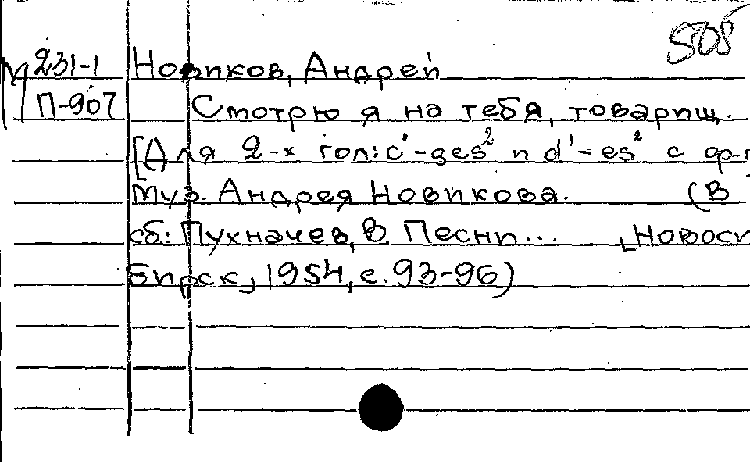 508
М 231-1 Новиков, Андрей
П-907 Смотрю я на тебя, товарищ.
[Для 2-х гол: c'-ges² и d'-es² с ф-п
Муз. Андрея Новикова. (В
сб: Пухначев, В. Песни... Новоси
бирск, 1954, с. 93-96)